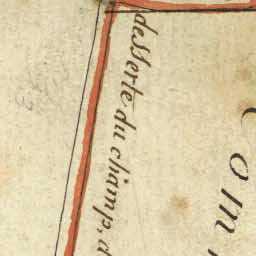 desserte du champ. d
om